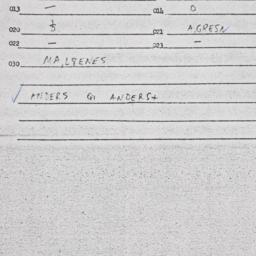 013 — 014 0
020 1/5 021 A,GRESN
022 — 023 —
030 MA,LGENES
ANDERS G ANDERS